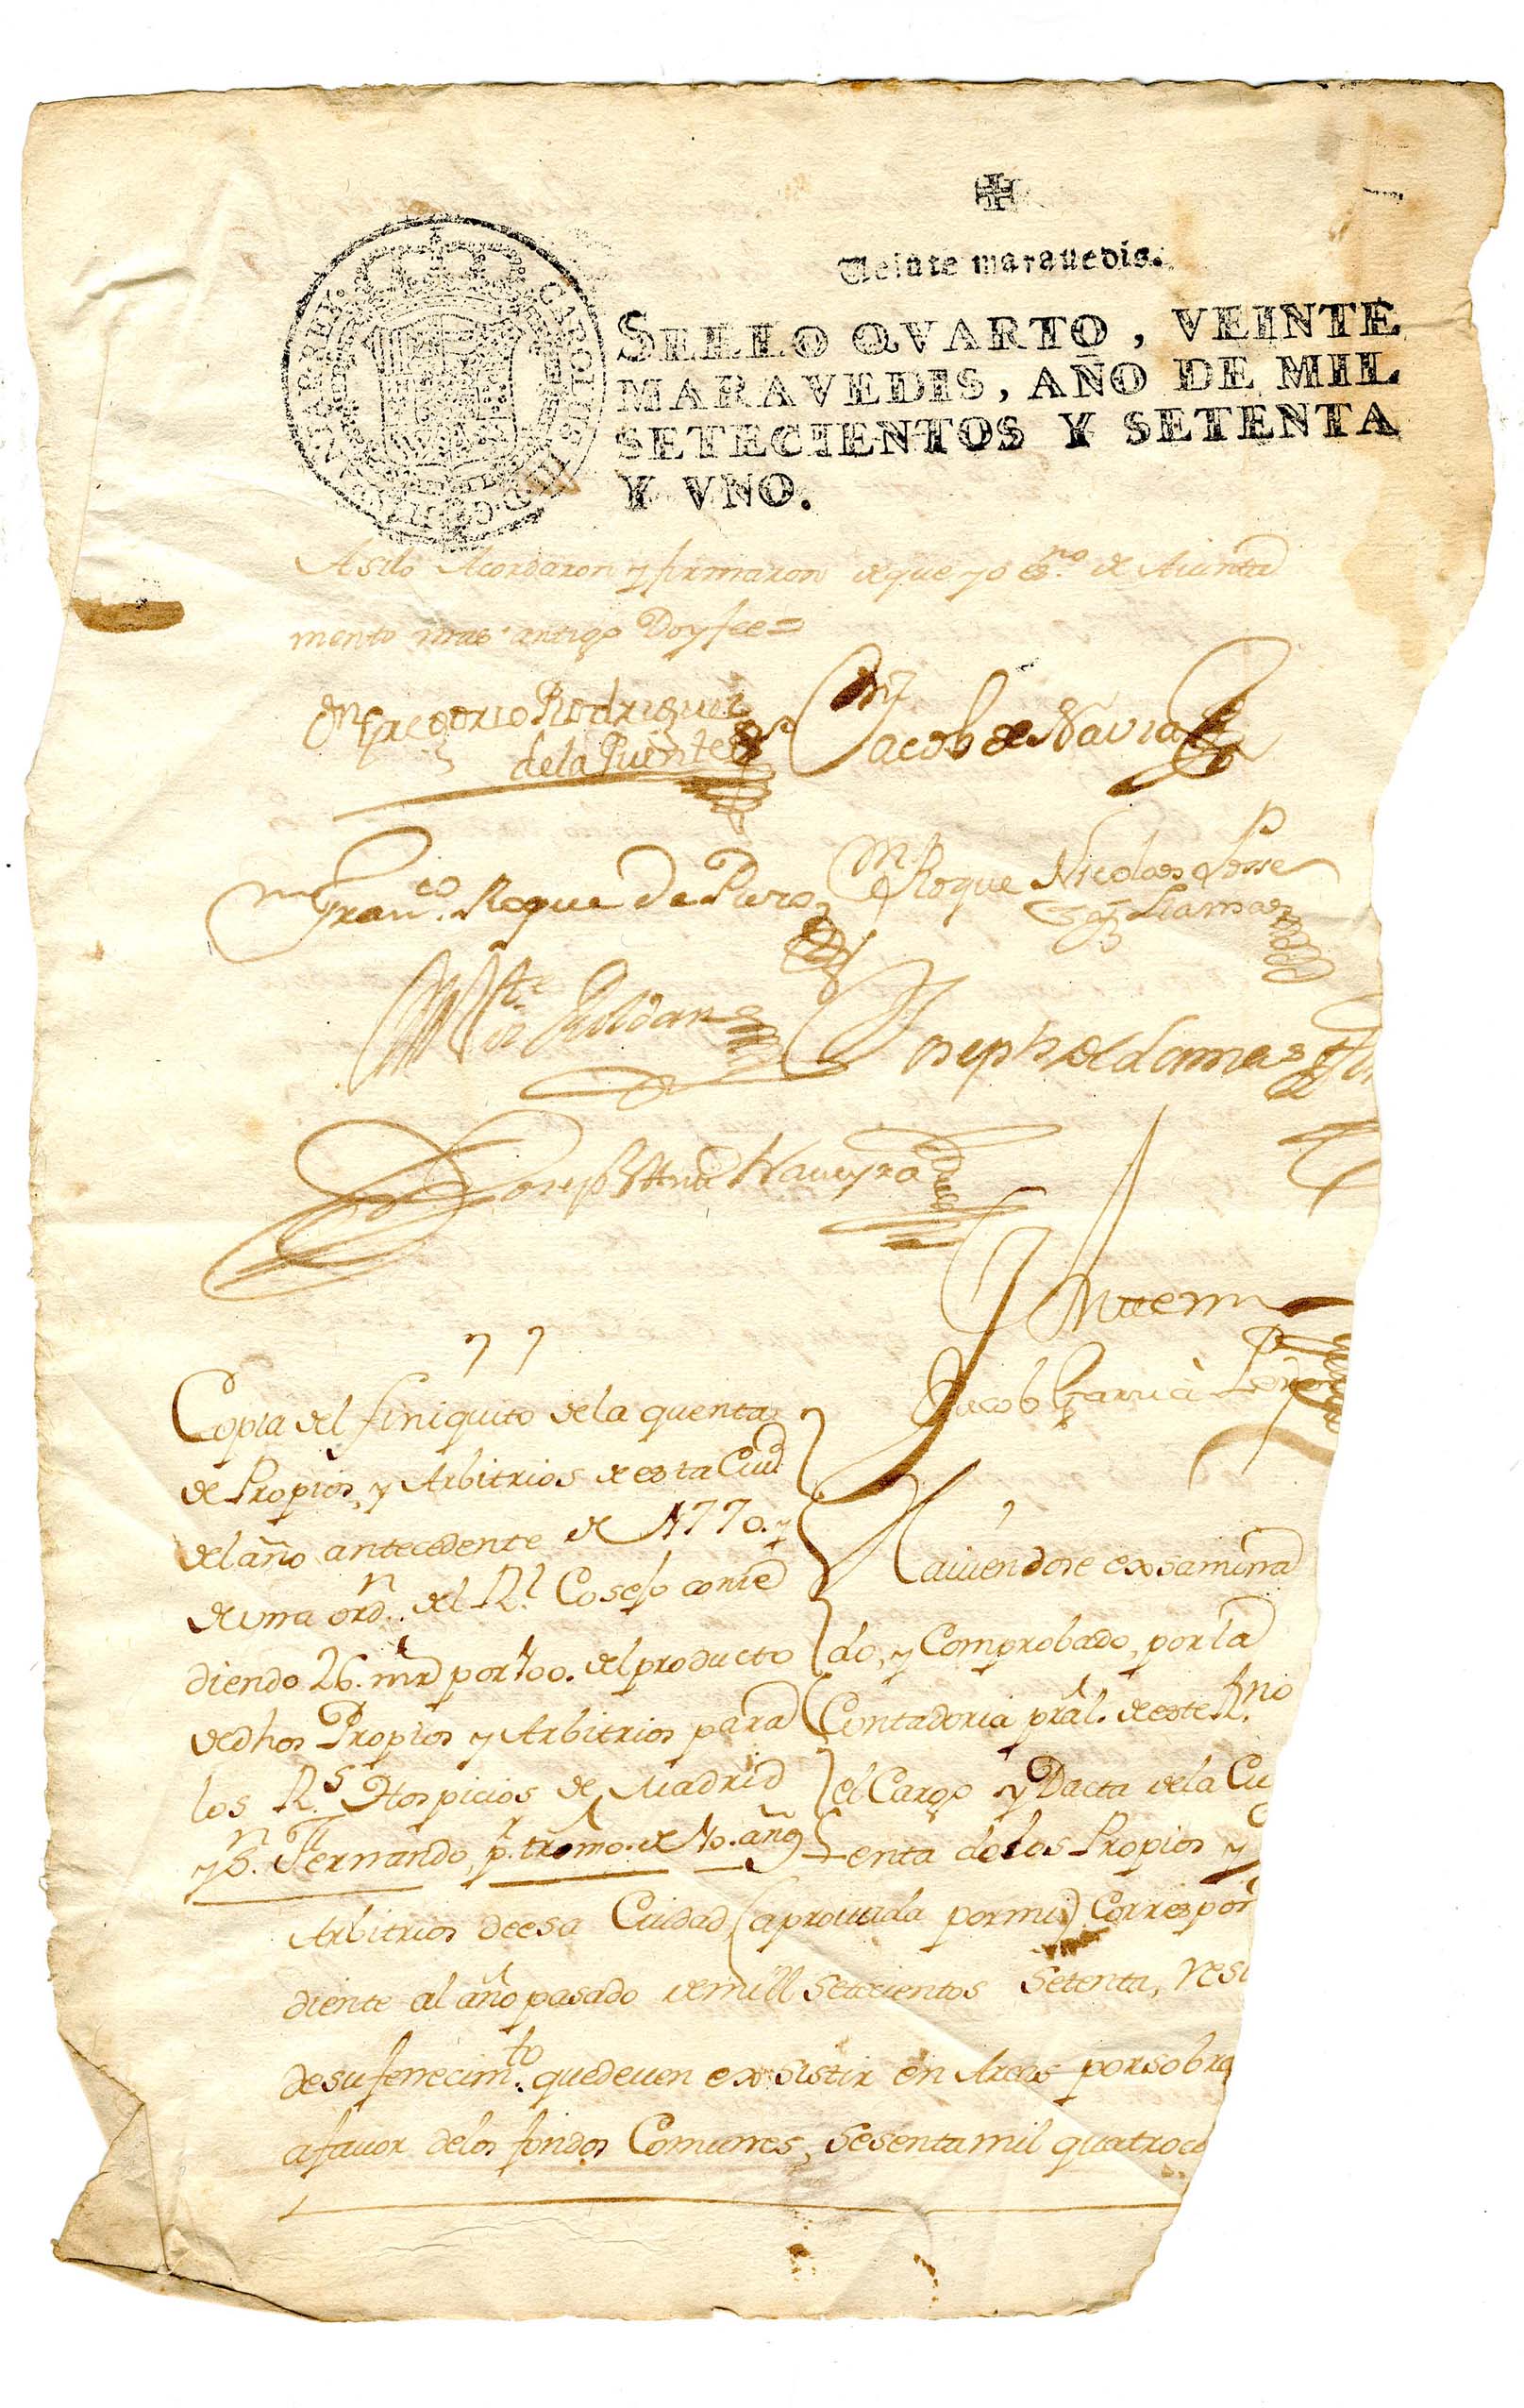 Veinte marauedis.
SELLO QVARTO, VEINTE
MARAVEDIS, AÑO DE MIL
SETECIENTOS Y SETENTA
Y VNO.
CAROLUS III D.G. HISPANIAR. REX.
Asilo Acordaron y firmaron de que yo es.no de Aiunta
mento mas antigo Doy fee =
Dn Gregorio Rodriguez
de la Puente
Dn Jacob de Navia
Dn Fran.co Roque de Parga
Dn Roque Nicolas
Llamas
Roldan
Joseph de Lamas
Joseph Antt.
Antte mi
Jacob Garcia
Copia del finiquito dela quenta
de Propios, y Arbitrios de esta Ciud
del año antecedente de 1770. y
de una ordn. del Rl. Cosejo conze
diendo 26. mrs por 100. del producto
de dhos Propios y Arbitrios para
los Rs. Hospicios de Madrid
y Sn. Fernando, pr. trmo. de 10. años
Haiuendose exsamina
do, y Comprobado, por la
Contadoria pral. de este Rno
el Cargo y Dacta de la Cu
enta de los Propios y
Arbitrios de esa Ciudad (aprouada por mi) Correspon
diente al año pasado de mill Setecientos Setenta, resu
de su fenecimto. que deuen exsistir en Arcas por sobra
a fauor delos fondos Comunes, Sesenta mil quatroci